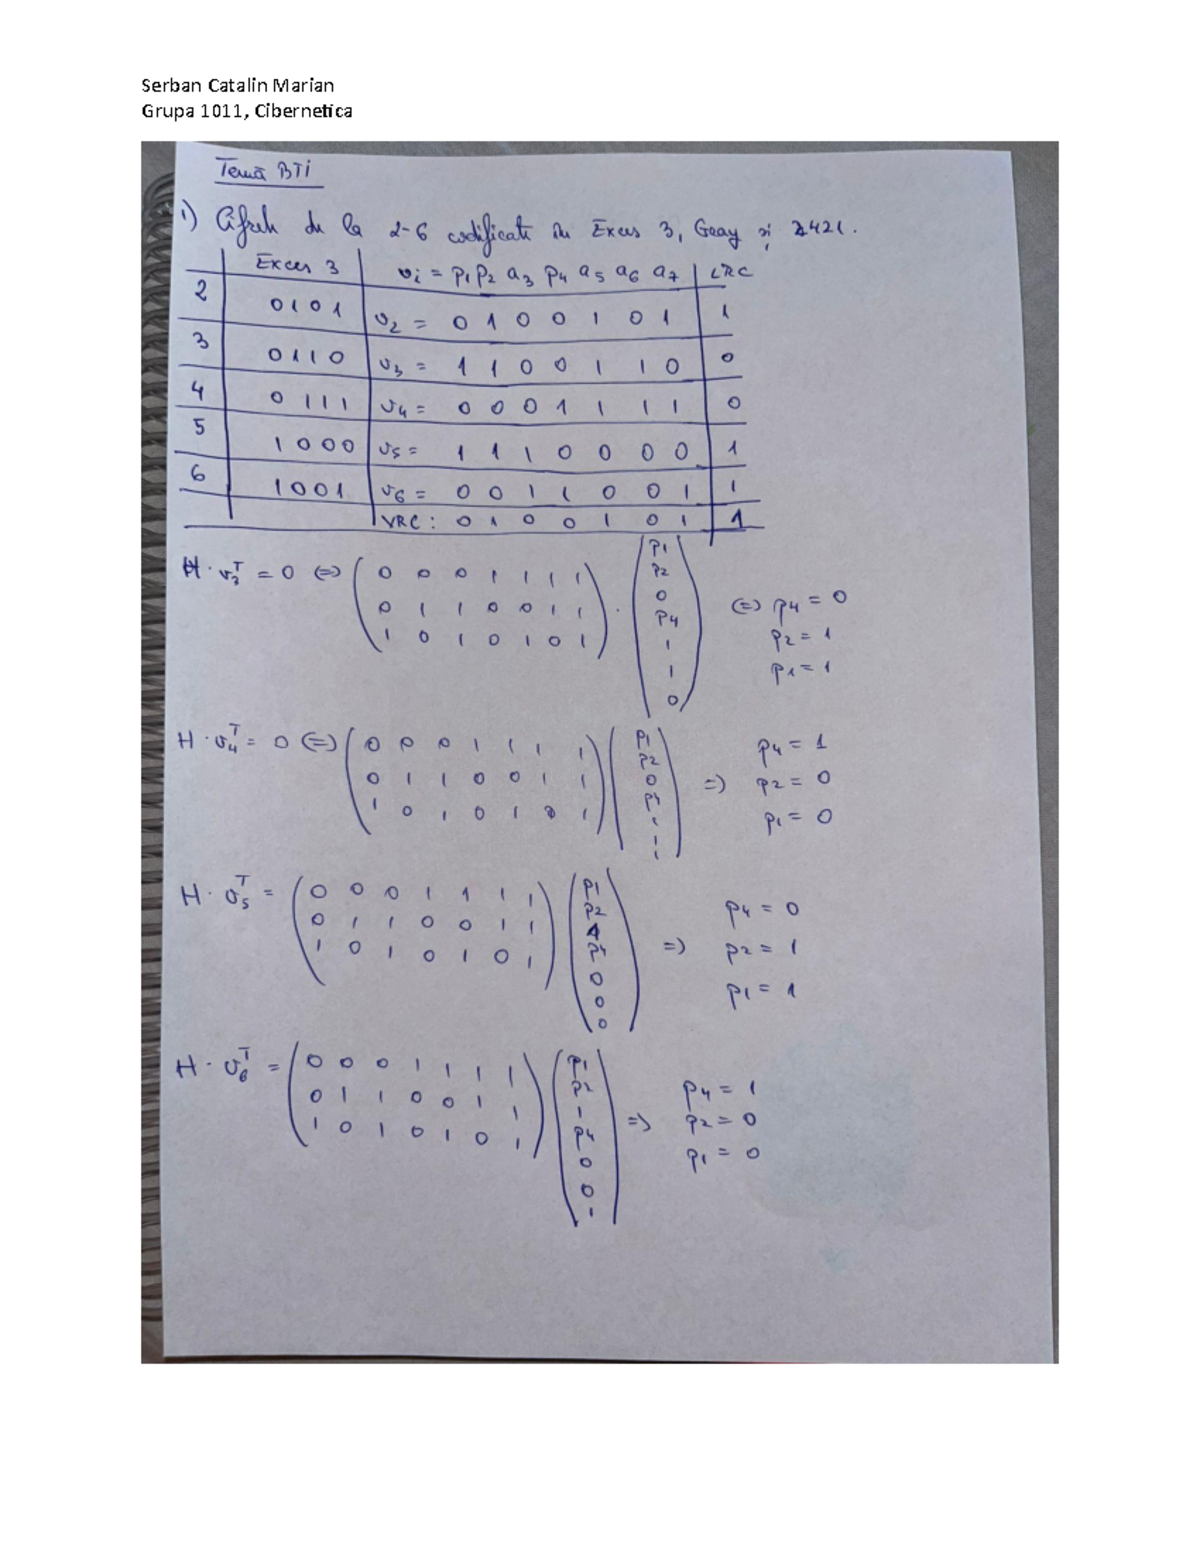 Serban Catalin Marian
Grupa 1011, Cibernetica
Temă BTI
1) Cifrele de la 2-6 codificate în Exces 3, Gray și 2421.
Exces 3 | vi = p1 p2 a3 p4 a5 a6 a7 | LRC
2 | 0101 | v2 = 0 1 0 0 1 0 1 | 1
3 | 0110 | v3 = 1 1 0 0 1 1 0 | 0
4 | 0111 | v4 = 0 0 0 1 1 1 1 | 0
5 | 1000 | v5 = 1 1 1 0 0 0 0 | 1
6 | 1001 | v6 = 0 0 1 1 0 0 1 | 1
VRC: 0 1 0 0 1 0 1 | 1
H · v3^T = 0 (=)
0 0 0 1 1 1 1
0 1 1 0 0 1 1
1 0 1 0 1 0 1
·
p1
p2
0
p4
1
1
0
(=) p4 = 0
p2 = 1
p1 = 1
H · v4^T = 0 (=)
0 0 0 1 1 1 1
0 1 1 0 0 1 1
1 0 1 0 1 0 1
p1
p2
0
p4
1
1
1
=) p4 = 1
p2 = 0
p1 = 0
H · v5^T =
0 0 0 1 1 1 1
0 1 1 0 0 1 1
1 0 1 0 1 0 1
p1
p2
1
p4
0
0
0
=) p4 = 0
p2 = 1
p1 = 1
H · v6^T =
0 0 0 1 1 1 1
0 1 1 0 0 1 1
1 0 1 0 1 0 1
p1
p2
1
p4
0
0
1
=) p4 = 1
p2 = 0
p1 = 0